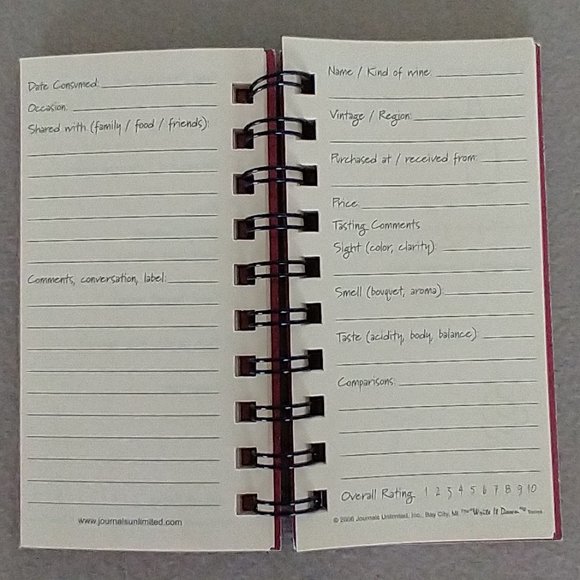 Date Consumed:
Occasion:
Shared with (family / food / friends):
Comments, conversation, label:
www.journalsunlimited.com
Name / Kind of wine:
Vintage / Region:
Purchased at / received from:
Price:
Tasting Comments
Sight (color, clarity):
Smell (bouquet, aroma):
Taste (acidity, body, balance):
Comparisons:
Overall Rating: 1 2 3 4 5 6 7 8 9 10
© 2006 Journals Unlimited, Inc., Bay City, MI The "Write It Down" Series